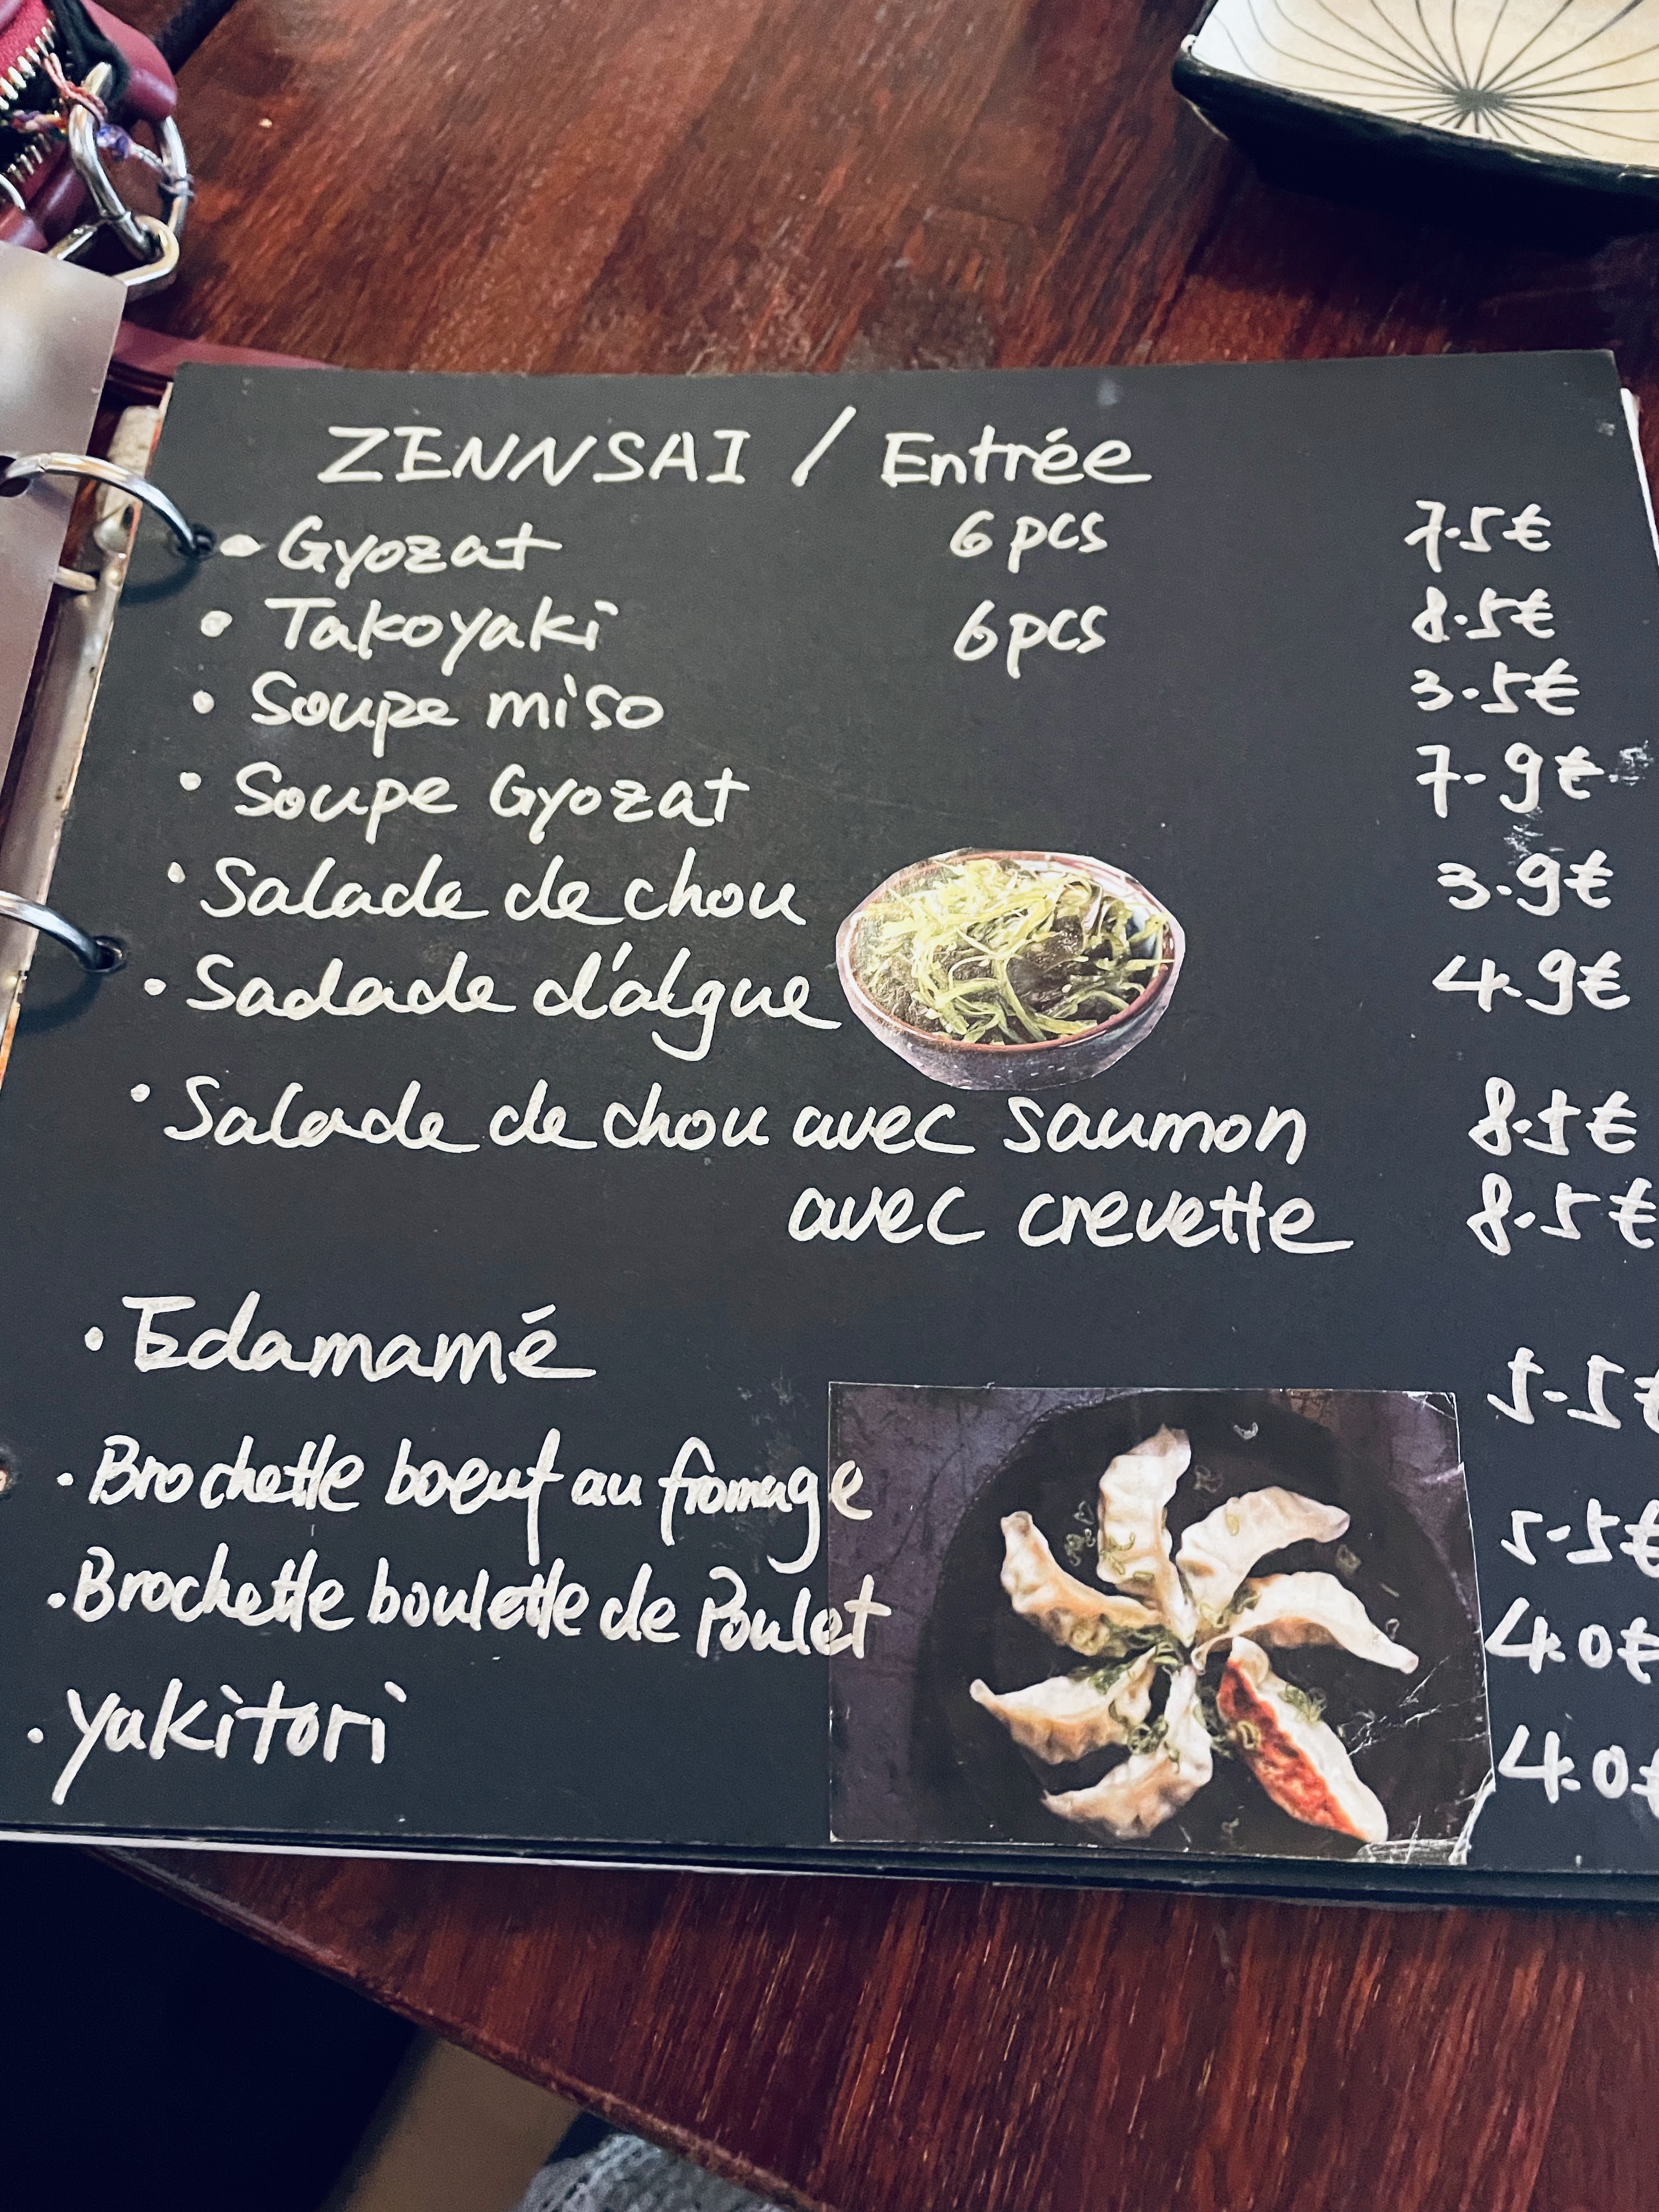 ZENNSAI / Entrée
• Gyozat 6 pcs 7.5€
• Takoyaki 6 pcs 8.5€
• Soupe miso 3.5€
• Soupe Gyozat 7.9€
• Salade de chou 3.9€
• Sadade d'algue 4.9€
• Salade de chou avec saumon 8.5€
avec crevette 8.5€
• Edamamé 5.5€
• Brochette boeuf au fromage 5.5€
• Brochette boulette de Poulet 4.0€
• yakitori 4.0€